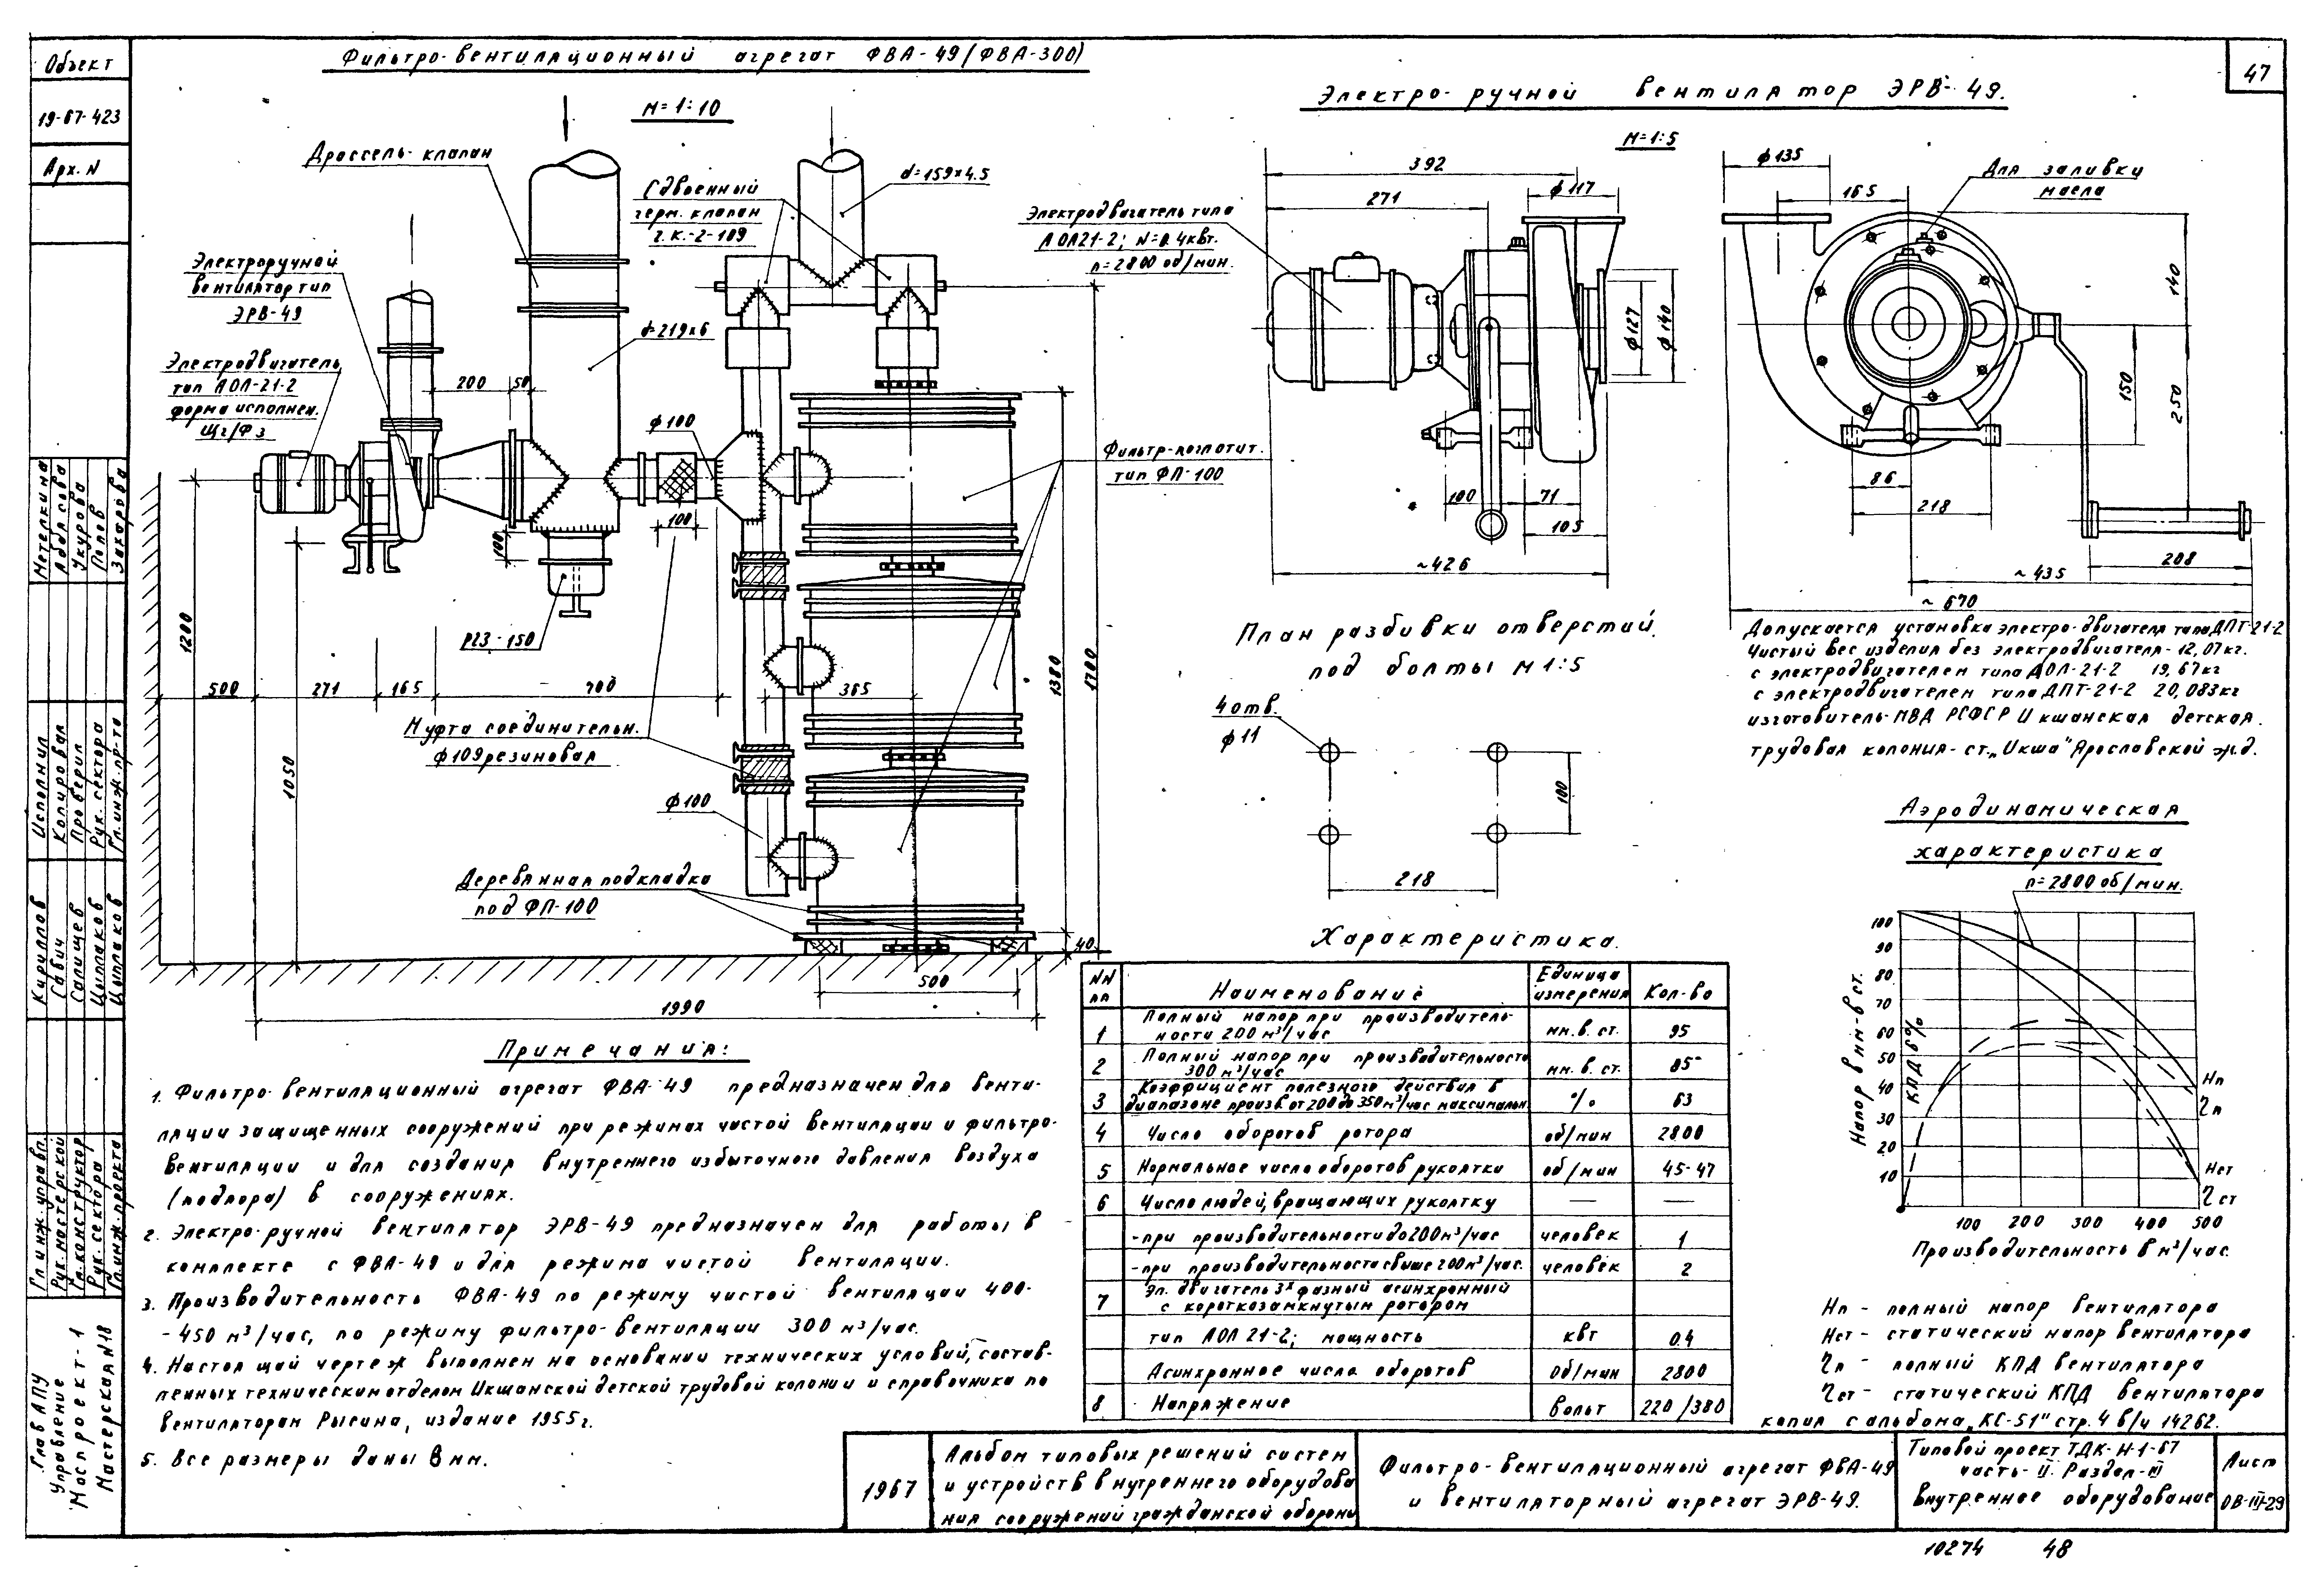 Объект
19-67-423
Арх. N
Фильтро-вентиляционный агрегат ФВА-49 (ФВА-300)
М=1:10
Дроссель-клапан
Сдвоенный
герм. клапан
d=159×4.5
Электроручной
вентилятор тип
ЭРВ-49
Электродвигатель
тип АОЛ-21-2
форма исполнен.
Щ2/Ф3
d=219×6
200
50
ф100
100
100
Фильтр-поглотит.
тип ФП-100
1200
500
271
165
700
365
1380
1700
1050
Муфта соединительн.
ф109 резиновая
ф100
Деревянная подкладка
под ФП-100
40
500
1990
Электро-ручной вентилятор ЭРВ-49.
47
М=1:5
392
271
ф117
Электродвигатель типа
АОЛ21-2; N=0.4квт.
n=2800 об/мин.
ф127
ф140
100
71
105
~426
ф135
165
Для заливки
масла
140
150
250
86
218
208
~435
~670
План разбивки отверстий
под болты М1:5
4 отв.
ф11
100
218
Допускается установка электро-двигателя типа ДПТ-21-2
Чистый вес изделия без электродвигателя-12,07кг.
с электродвигателем типа АОЛ-21-2 19,67кг
с электродвигателем типа ДПТ-21-2 20,083кг
изготовитель-МВД РСФСР Икшанская детская.
трудовая колония-ст. „Икша" Ярославской ж.д.
Аэродинамическая
характеристика
n=2800 об/мин.
Напор в мм-в ст.
КПД в %
100
90
80
70
60
50
40
30
20
10
Нп
ηп
Нст
ηст
100 200 300 400 500
Производительность в м³/час.
Нп - полный напор вентилятора
Нст - статический напор вентилятора
ηп - полный КПД вентилятора
ηст - статический КПД вентилятора
копия с альбома „КС-51" стр. 4 в/ч 14262.
Характеристика.
NN пп Наименование Единица измерения Кол-во
1 Полный напор при производительности 200 м³/час мм.в.ст. 95
2 Полный напор при производительности 300 м³/час мм.в.ст. 85
3 Коэффициент полезного действия в диапазоне произв. от 200 до 350 м³/час максимальн. % 63
4 Число оборотов ротора об/мин 2800
5 Нормальное число оборотов рукоятки об/мин 45-47
6 Число людей, вращающих рукоятку — —
-при производительности до 200 м³/час человек 1
-при производительности свыше 200 м³/час. человек 2
7 Эл. двигатель 3х фазный асинхронный с короткозамкнутым ротором
тип АОЛ 21-2; мощность квт 0.4
Асинхронное число оборотов об/мин 2800
8 Напряжение вольт 220/380
Примечания:
1. Фильтро-вентиляционный агрегат ФВА-49 предназначен для венти-
ляции защищенных сооружений при режимах чистой вентиляции и фильтро-
вентиляции и для создания внутреннего избыточного давления воздуха
(подпора) в сооружениях.
2. Электро-ручной вентилятор ЭРВ-49 предназначен для работы в
комплекте с ФВА-49 и для режима чистой вентиляции.
3. Производительность ФВА-49 по режиму чистой вентиляции 400-
-450 м³/час, по режиму фильтро-вентиляции 300 м³/час.
4. Настоящий чертеж выполнен на основании технических условий, состав-
ленных техническим отделом Икшанской детской трудовой колонии и справочника по
вентиляторам Рысина, издание 1955г.
5. Все размеры даны в мм.
Метелкина
Укурова
Попов
Захарова
Исполнил
Копировал
Проверил
Рук. сектора
Гл. инж. пр-та
Кириллов
Савич
Салищев
Цыплаков
Цыплаков
Гл. инж. управл.
Рук. мастерской
Гл. конструктор
Рук. сектора
Гл. инж. проекта
Глав АПУ
Управление
Моспроект-1
Мастерская N18
1967
Альбом типовых решений систем
и устройств внутреннего оборудова
ния сооружений гражданской обороны
Фильтро-вентиляционный агрегат ФВА-49
и вентиляторный агрегат ЭРВ-49.
Типовой проект ТДК-Н-1-67
часть-II. Раздел-III
Внутреннее оборудование
Лист
ОВ-III-29
10274 48